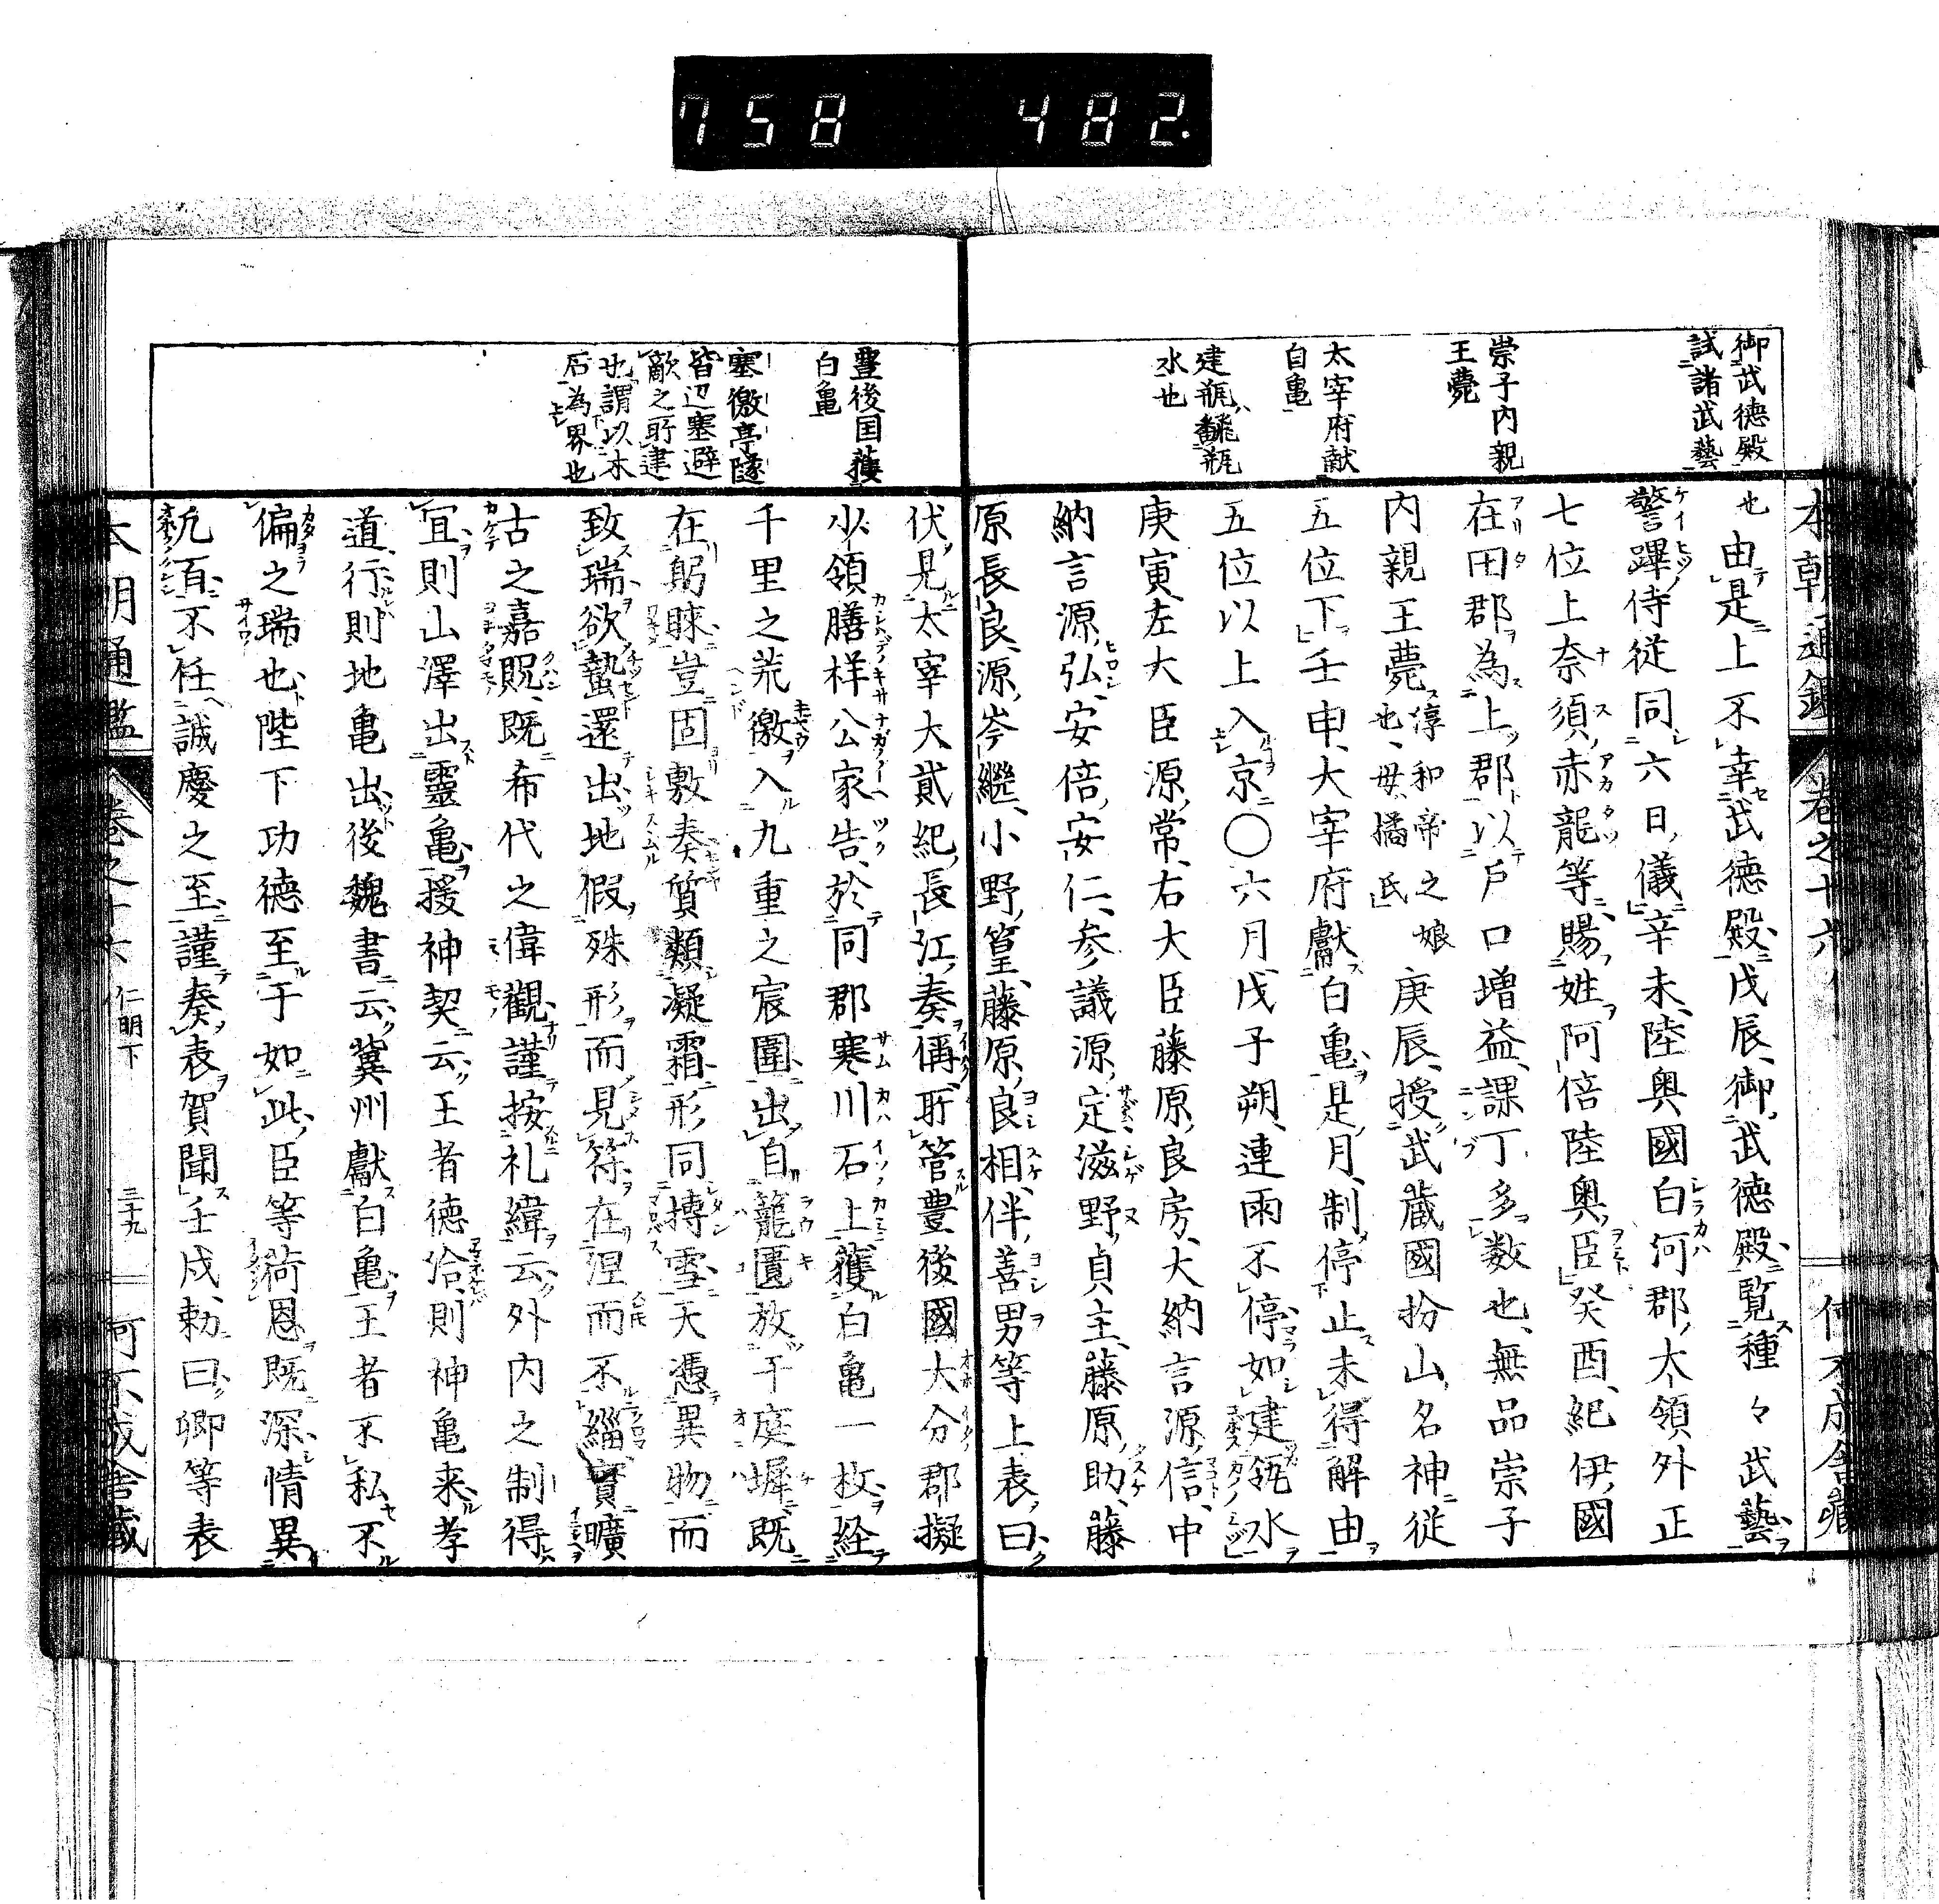 758 482.
御武徳殿
試諸武藝
崇子内親
王薨
太宰府献
白亀
建瓶飜瓶
水也
本朝通鑑 巻之十六 何不成舎蔵
也由是上不幸武徳殿戊辰御武徳殿覧種々武藝
警蹕侍従同六日儀辛未陸奥國白河郡大領外正
七位上奈須赤龍等賜姓阿倍陸奥臣癸酉紀伊國
在田郡為上郡以戸口増益課丁多数也無品崇子
内親王薨淳和帝之娘也母橘氏庚辰授武蔵國扮山名神従
五位下壬申大宰府獻白亀是月制停止未得解由
五位以上入京〇六月戊子朔連雨不停如建瓴水
庚寅左大臣源常右大臣藤原良房大納言源信中
納言源弘安倍安仁参議源定滋野貞主藤原助藤
原長良源岑繼小野篁藤原良相伴善男等上表曰
豊後国獲
白亀
塞徼亭隧
皆辺塞避
敵之所建
也謂以木
石為界也
伏見太宰大貳紀長江奏偁所管豊後國大分郡擬
少領膳伴公家告於同郡寒川石上獲白亀一枚経
千里之荒徼入九重之宸圍出自籠匱放于庭墀既
在躬睞豈固敷奏質類凝霜形同摶雪天憑異物而
致瑞欲蟄還出地假殊形而見符在涅而不緇實曠
古之嘉貺既希代之偉觀謹按礼緯云外内之制得
宜則山澤出靈亀援神契云王者徳洽則神亀来孝
道行則地亀出後魏書云冀州獻白亀王者不私不
偏之瑞也陛下功徳至于如此臣等荷恩既深情異
凡百不任誠慶之至謹奏表賀聞壬戌勅曰卿等表
本朝通鑑 巻之十六 仁明下 三十九 何不成舎蔵